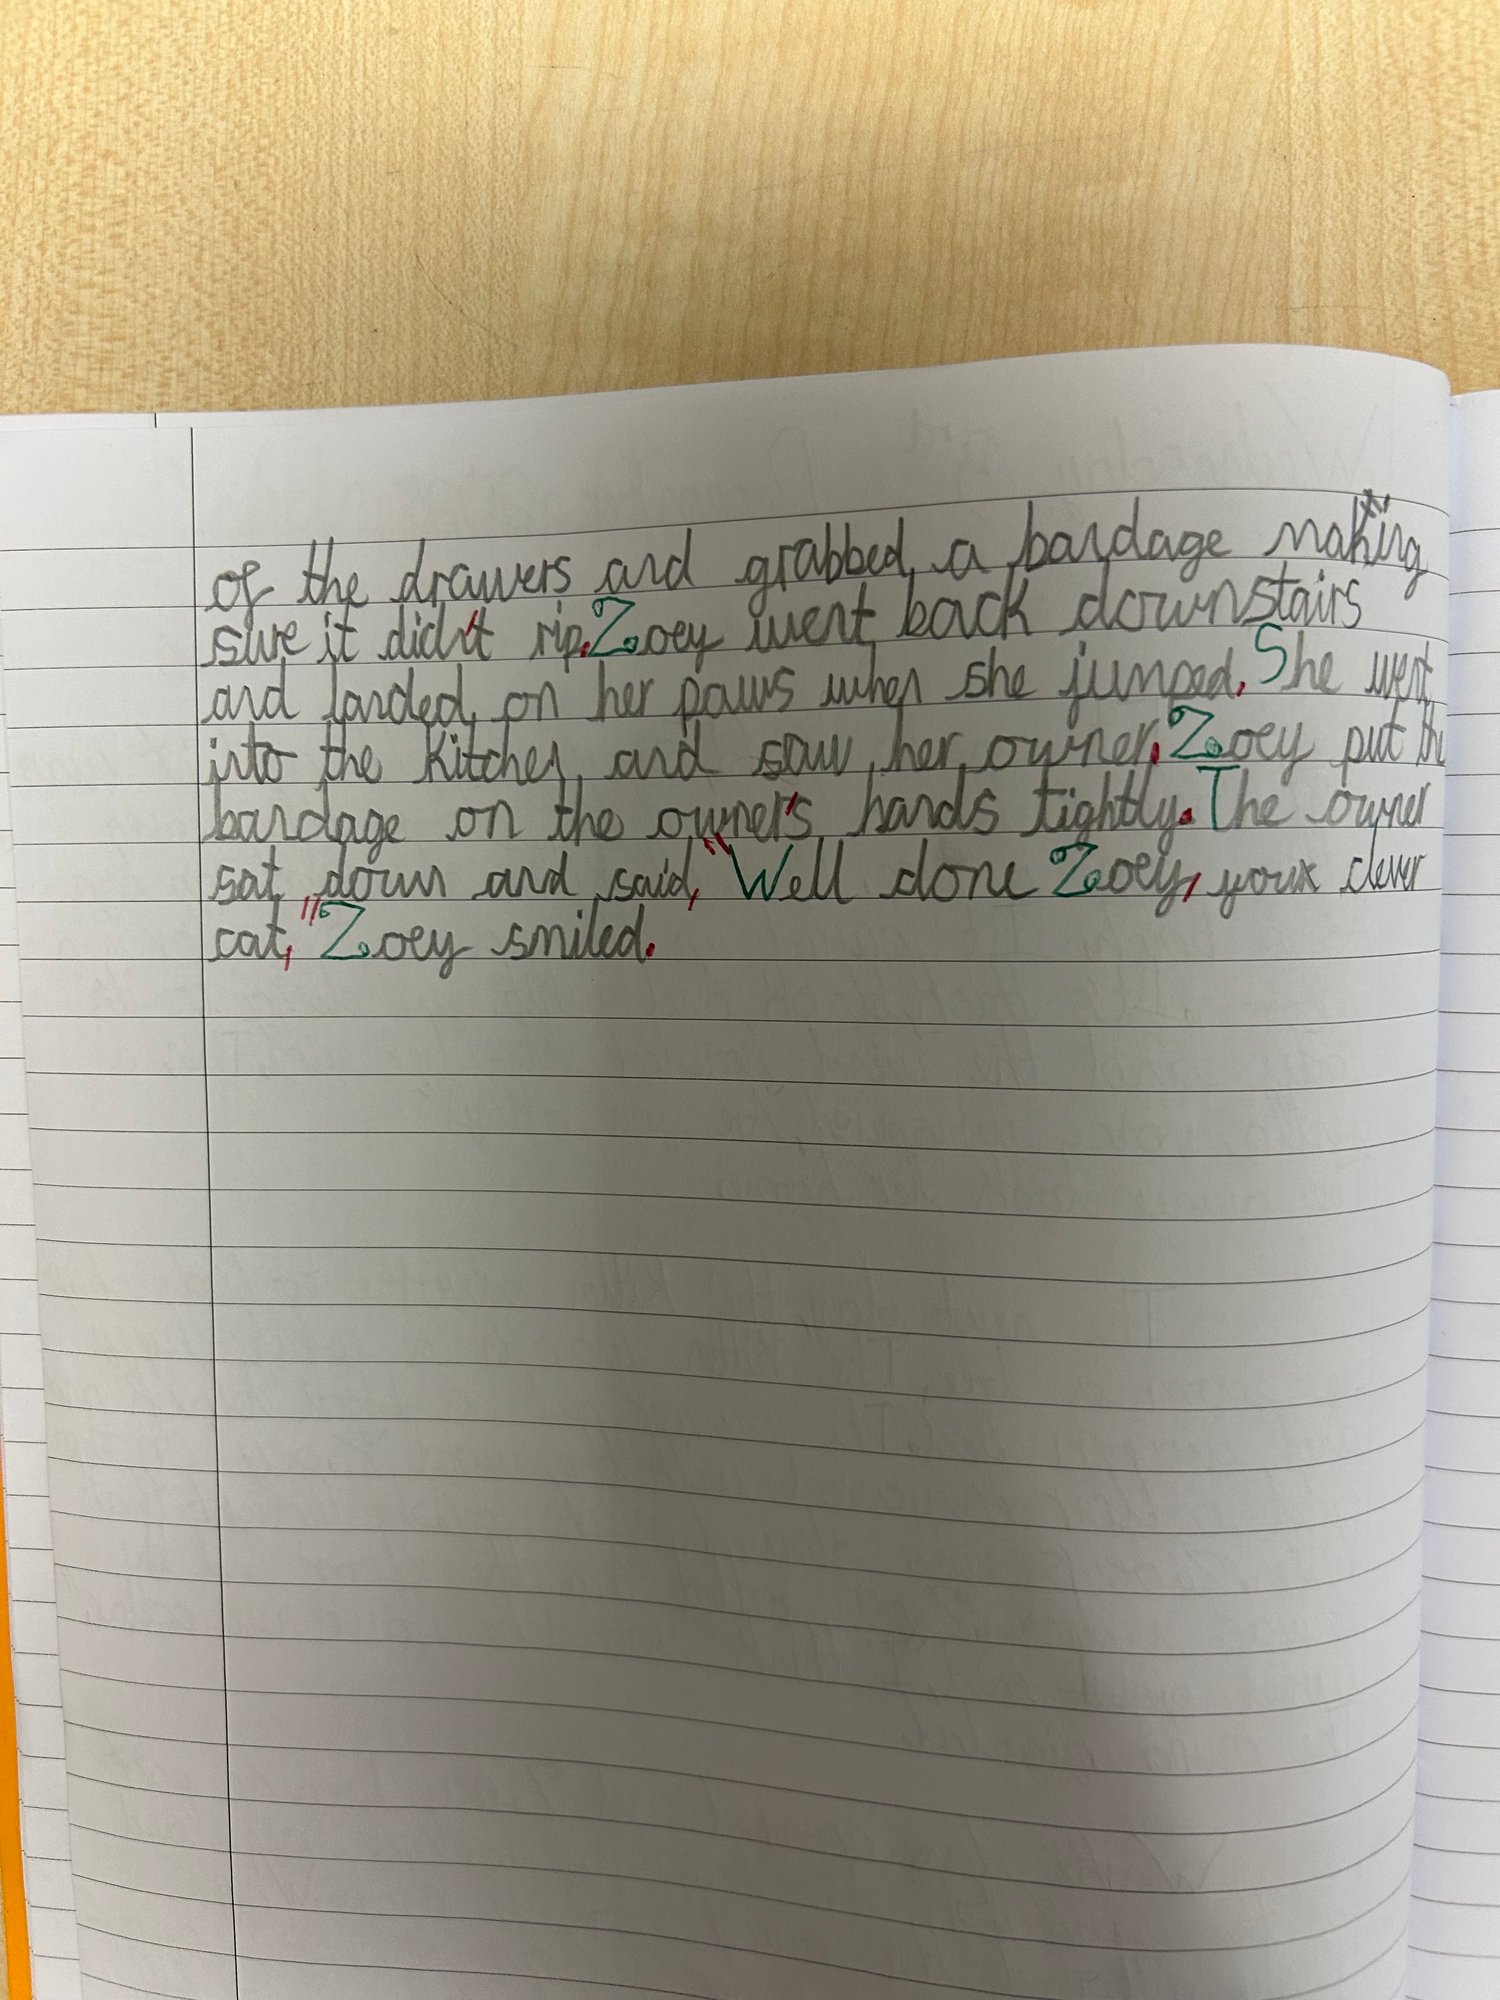 of the drawers and grabbed a bandage making
sure it didn't rip. Zoey went back downstairs
and landed on her paws when she jumped. She went
into the kitchen and saw her owner. Zoey put the
bandage on the owner's hands tightly. The owner
sat down and said, "Well done Zoey, your clever
cat," Zoey smiled.